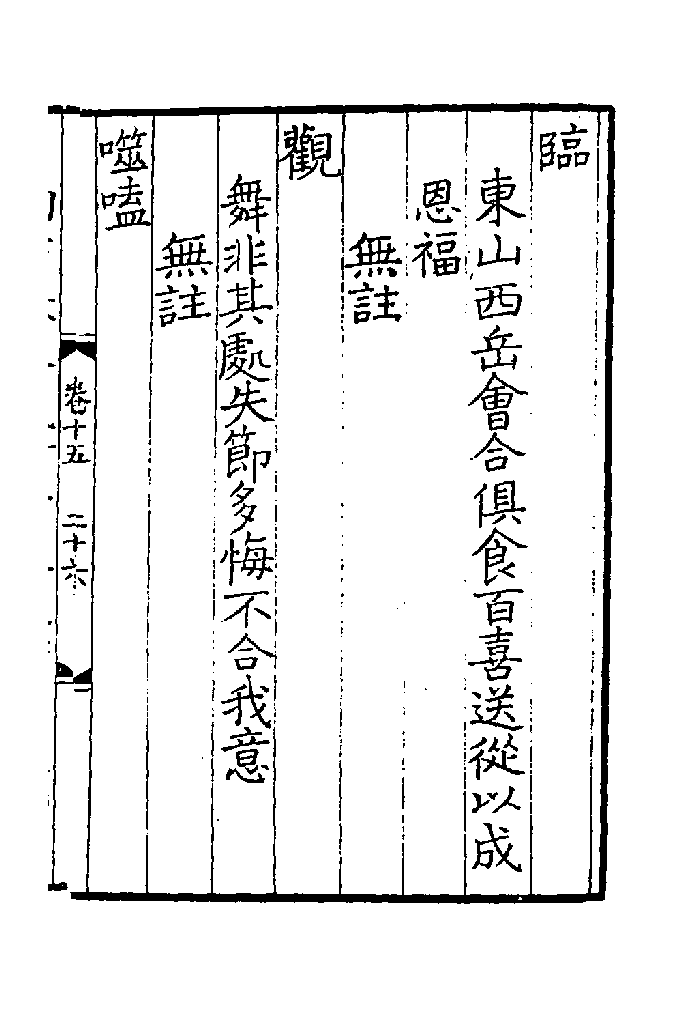 臨
東山西岳會合俱食百喜送從以成
恩福
無註
觀
舞非其處失節多悔不合我意
無註
噬嗑
卷十五 二十六